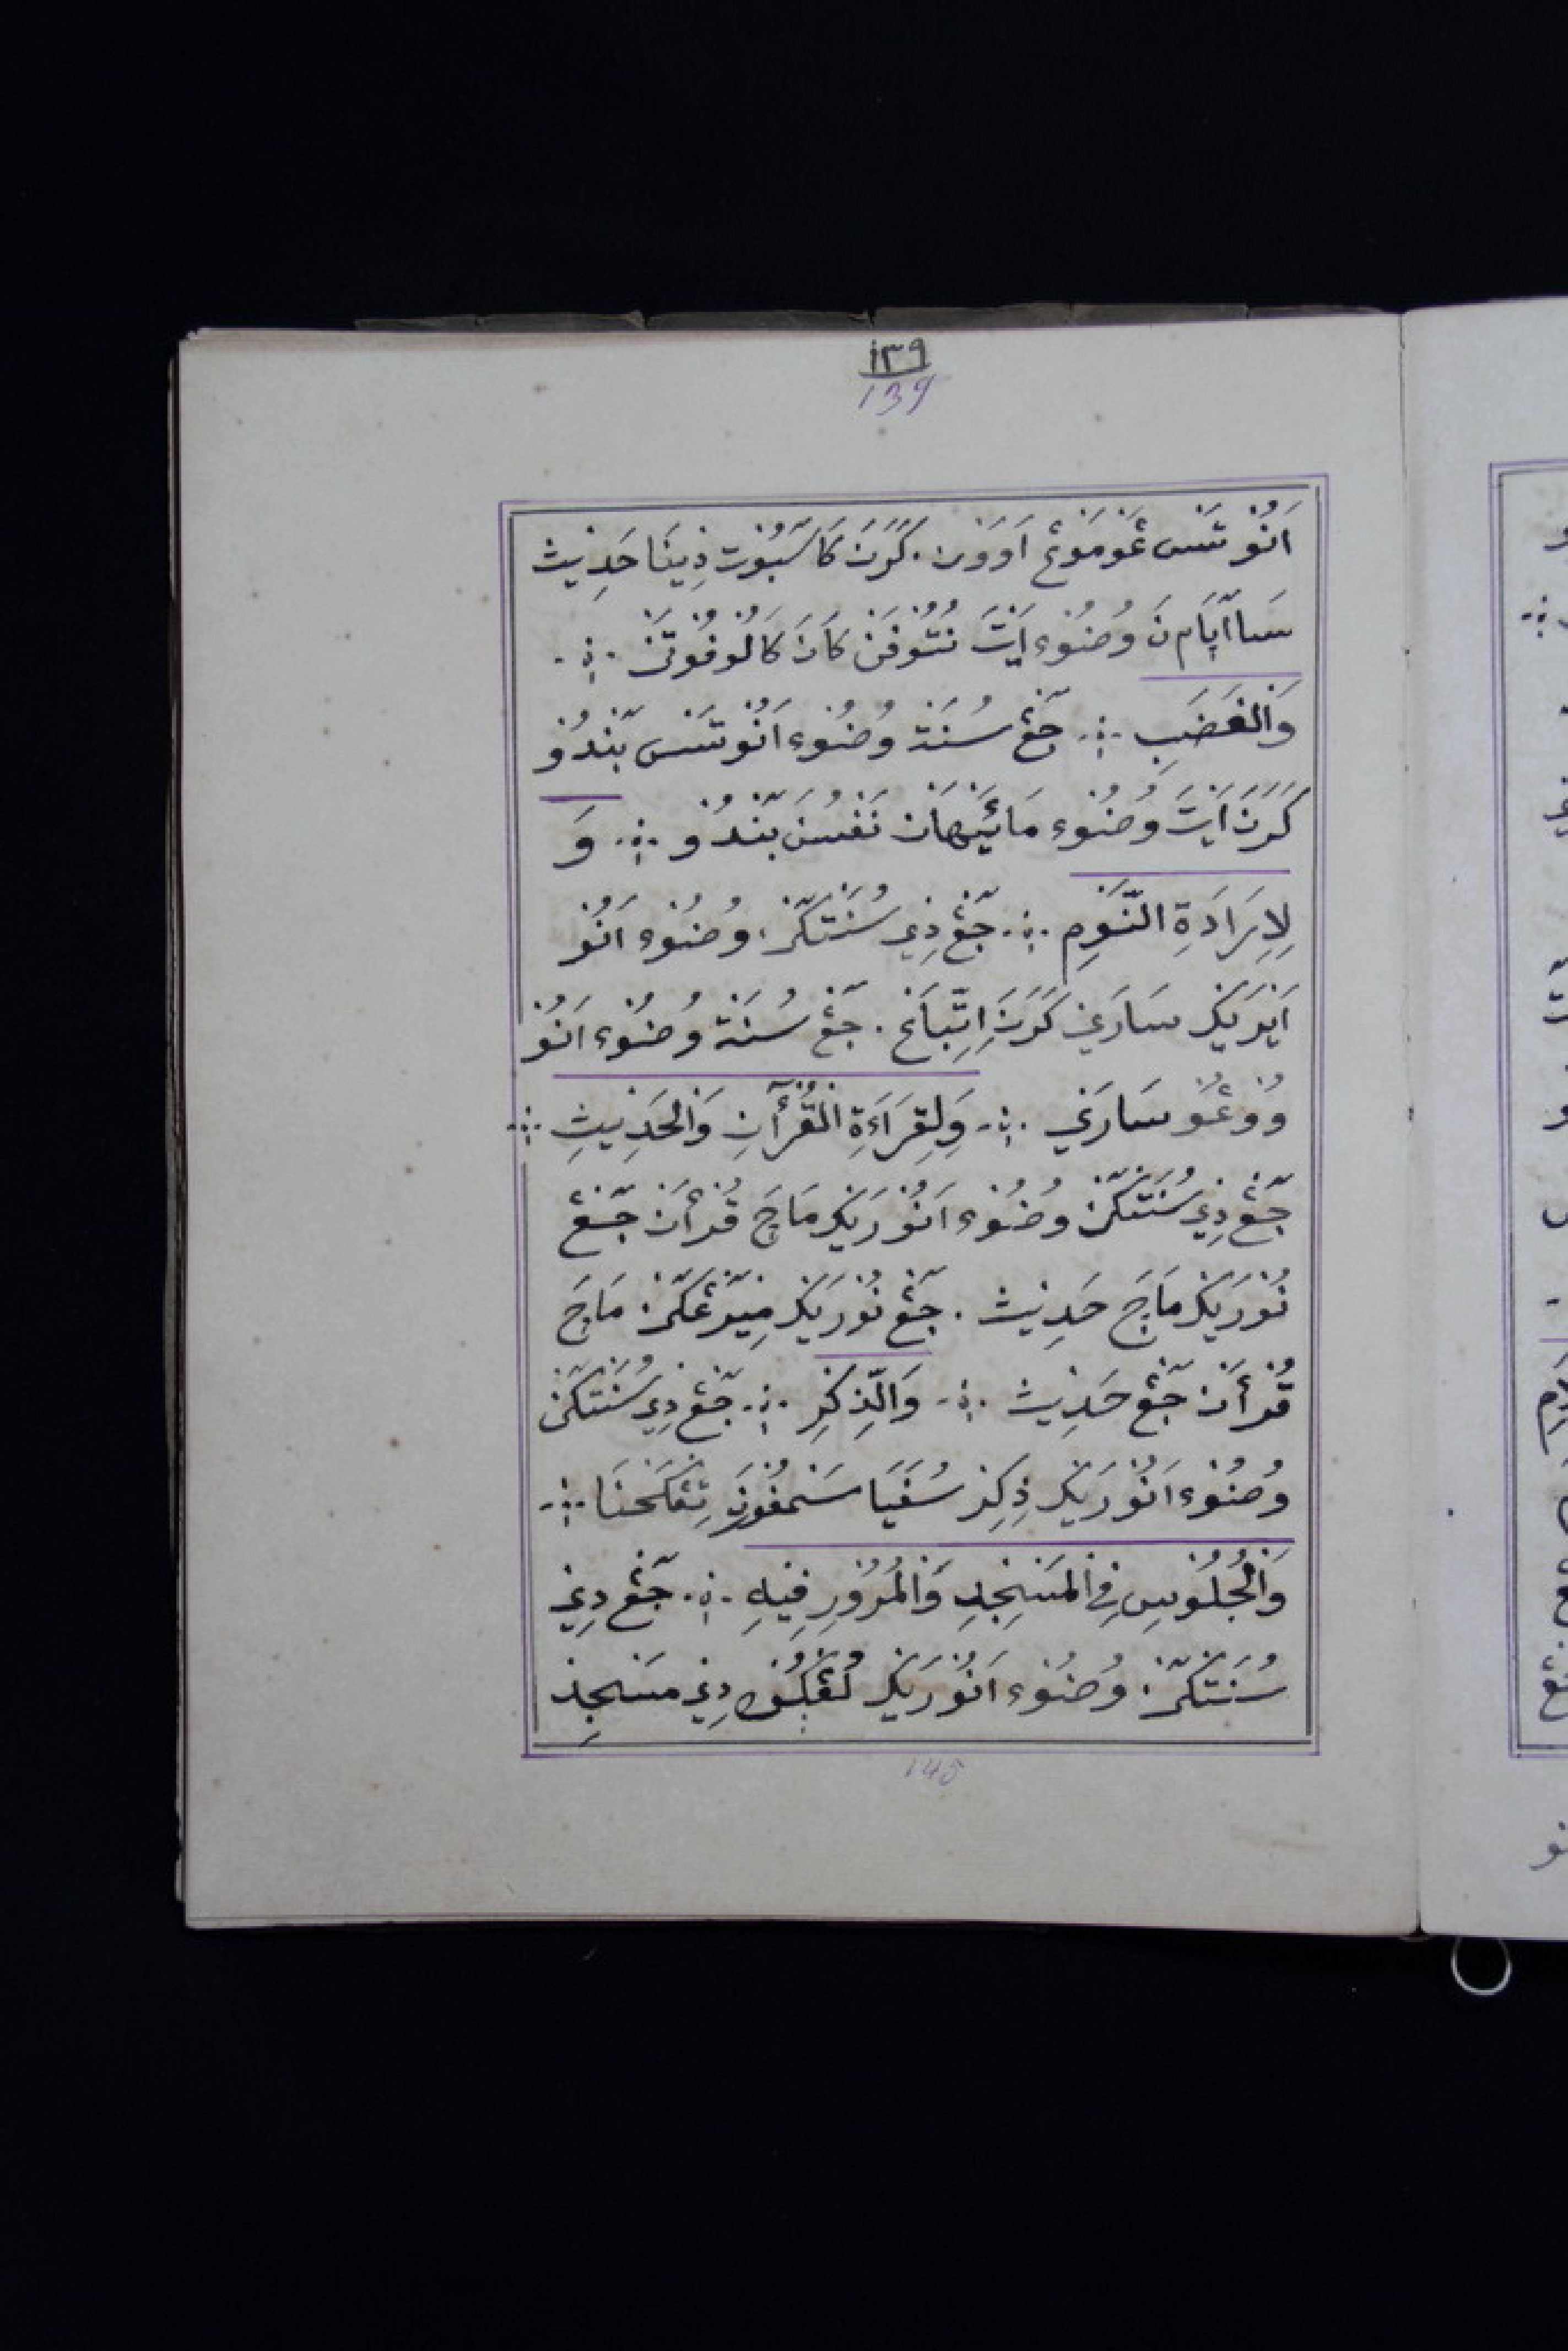 ١٣٩
139
اَنُوْ تَسْ غَوْمَوْغْ اَوَوَنْ. كَرَنَ كَاسَبُوْت دِيْنَا حَدِيْث
سَااڤَام نَ وُضُوْء اَيْتَ نُتُوْفَنْ كَانَ كَالُوْفُوْتَنْ ..
وَالْغَضَبِ .. جَغْ سُنَة وُضُوْء اَنُوْ تَسْ بَنْدُوْ
كَرَنَ اَيْتَ وُضُوْء مَائَيْهَانْ نَفْسُنَ بَنْدُوْ .. وَ
لِاِرَادَةِ النَّوْمِ .. جَغْ دِيْ سُنَتْكَنْ. وُضُوْء اَنُوْ
اَيْرَيْك سَارَيْ كَرَنَ اِتِّبَاعْ. جَغْ سُنَة وُضُوْء اَنُوْ
وُوْغُوْ سَارَيْ .. وَلِقِرَاءَةِ الْقُرْآنِ وَالْحَدِيْثِ ..
جَغْ دِيْ سُنَتْكَنْ وُضُوْء اَنُوْرَيْك مَاجَ قُرْأَنْ جَغْ
نُوْرَيْك مَاجَ حَدِيْث . جَغْ نُوْرَيْك مِيْرَغَكَنْ مَاجَ
قُرْأَنْ جَغْ حَدِيْث .. وَالذِّكْرِ .. جَغْ دِيْ سُنَتْكَنْ
وُضُوْء اَنُوْرَيْك ذِكِرْ سُفَيَا سَمْفُوْرْنَ تِڠْكَهْنَا ..
وَالْجُلُوْسِ فِى الْمَسْجِدِ وَالْمُرُوْرِ فِيْهِ .. جَغْ دِيْ
سُنَتْكَنْ. وُضُوْء اَنُوْرَيْك لُڠْكُوْه دِيْ مَسْجِدْ
145